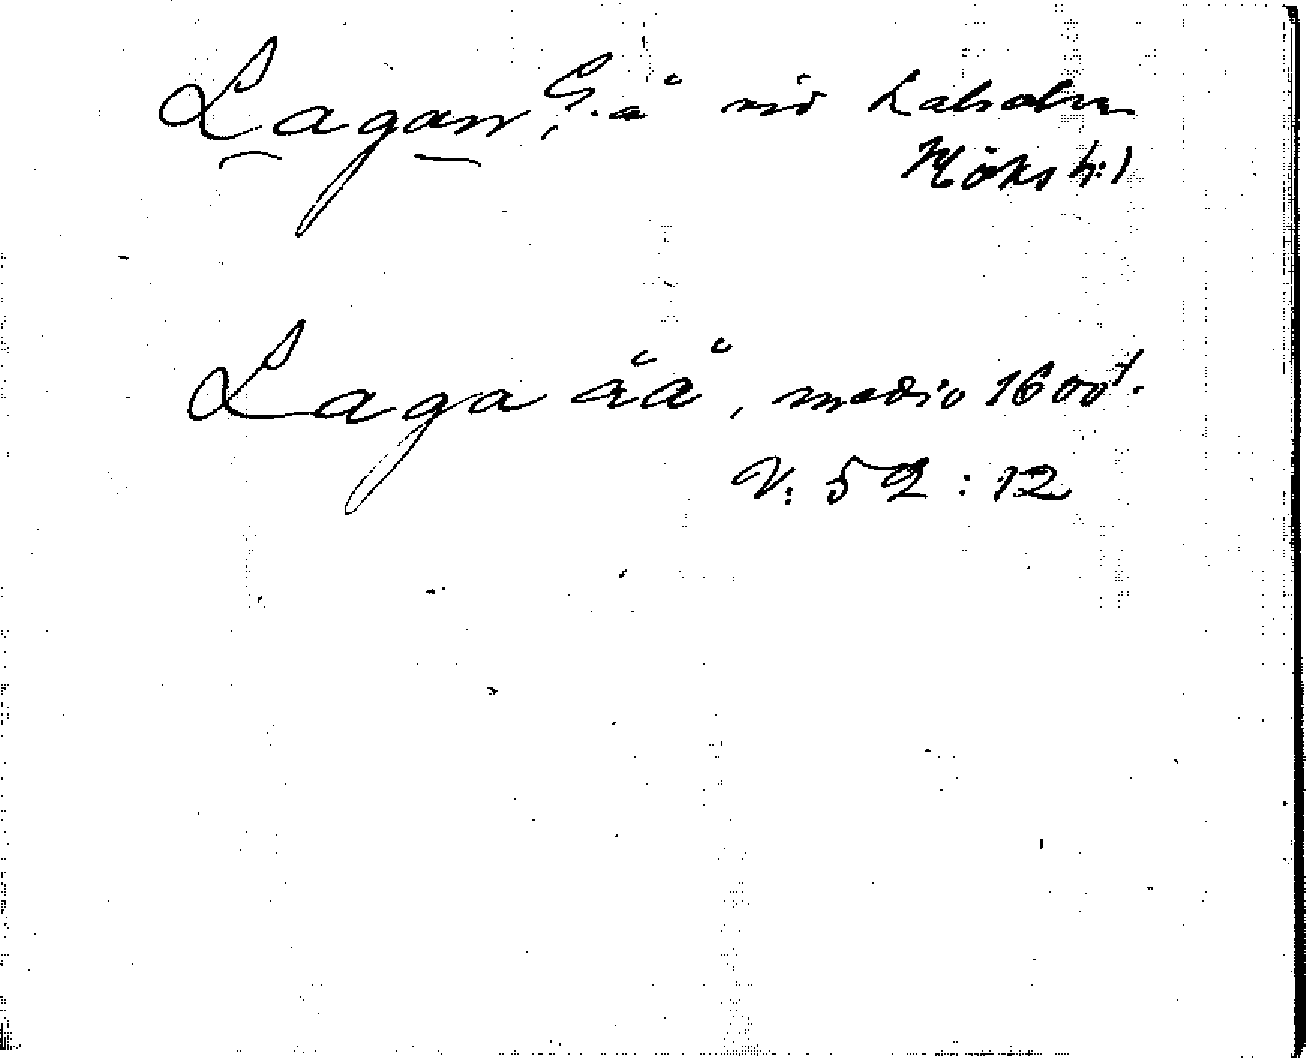 Lagan, S. å vid Laholm
Höks h:d
Laga åå, medio 1600t.
V: 52 : 12